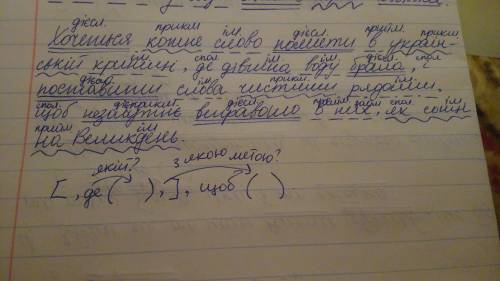 дієсл. прикм. ім. дієсл. прийм. прикм.
Хочеться кожне слово помити в україн-
ім. спол. ім. дієсл. спол.
ській криниці, де дівчина воду брала, і
дієсл. ім. прикм. ім.
поставити слова чистими рядами,
спол. дієприкм. дієсл. прийм. займ. спол. ім.
щоб незамутнє вигравало в них, як сонце
прийм. ім.
на Великдень.
якій? з якою метою?
[ , де ( ), ], щоб ( )